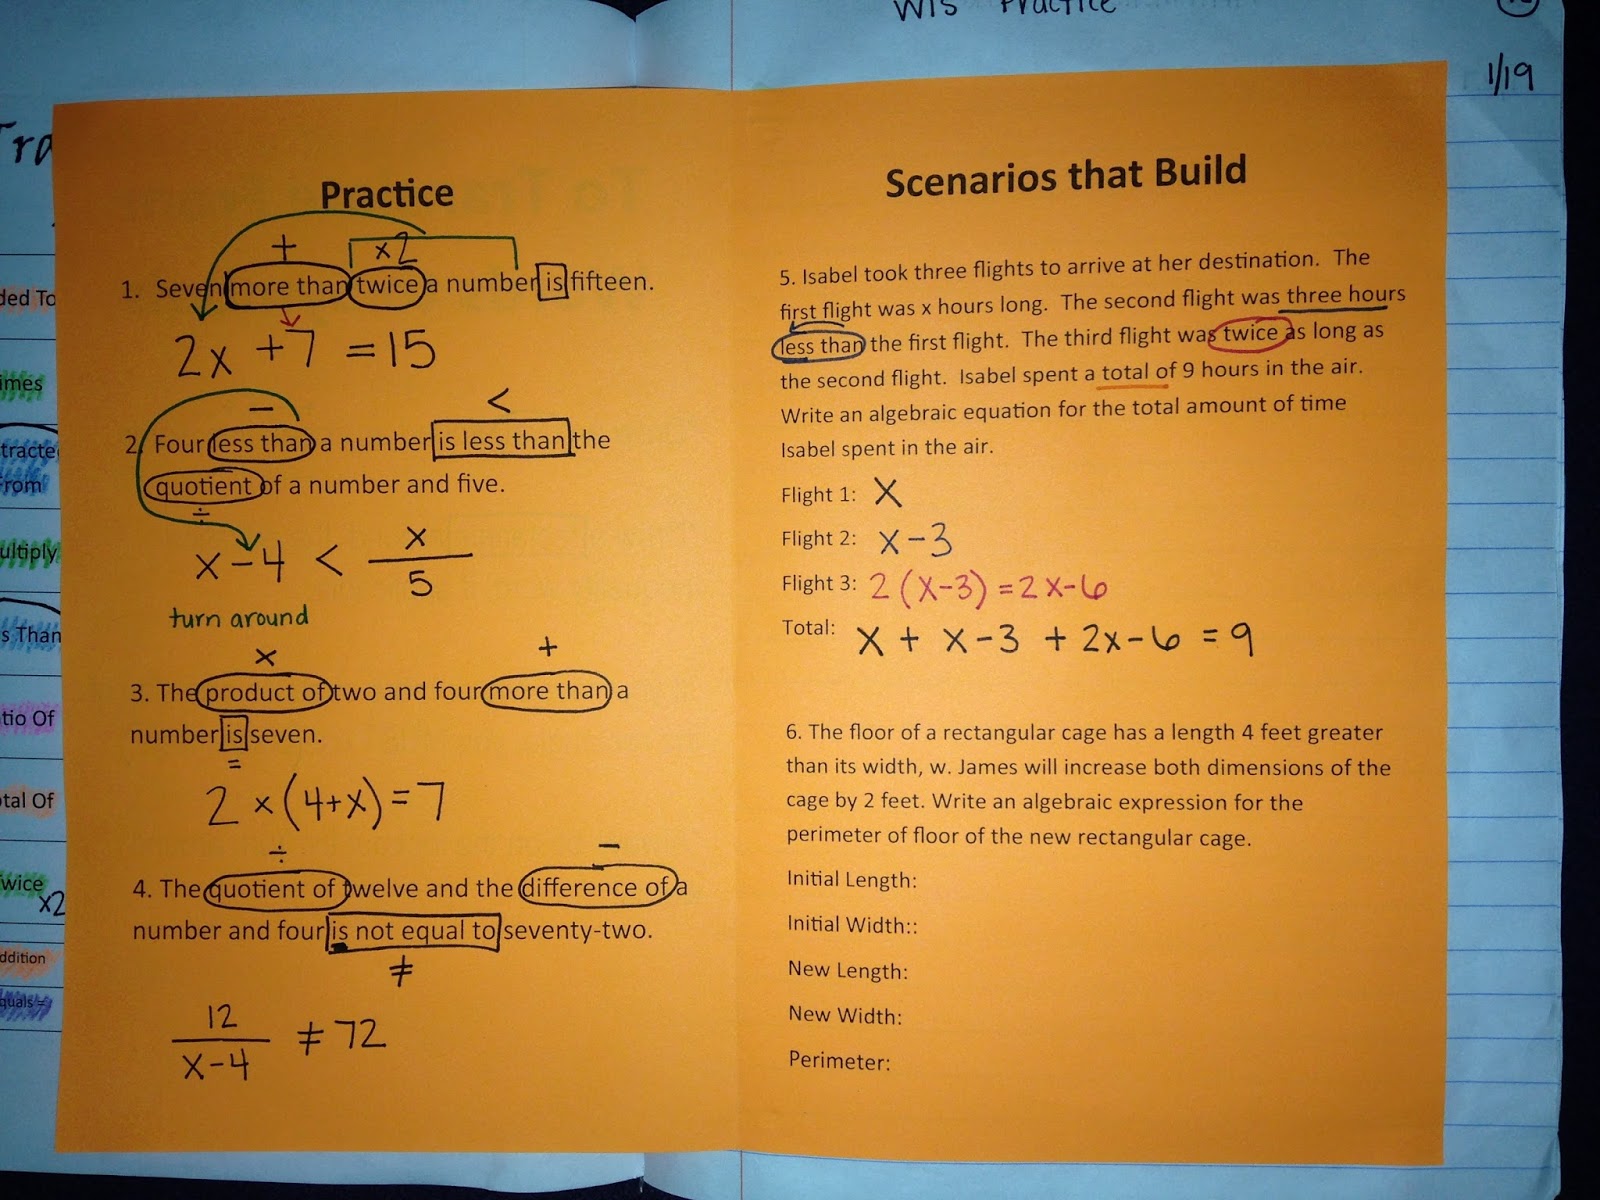 WIS Practice
1/19
Tra
ded To
imes
tracte
From
ultiply
s Than
tio Of
tal Of
wice
x2
ddition
quals =
Practice
+ x2
1. Seven more than twice a number is fifteen.
2x + 7 = 15
− <
2. Four less than a number is less than the
quotient of a number and five.
÷
x − 4 < x/5
turn around
x +
3. The product of two and four more than a
number is seven.
=
2 x (4+x) = 7
÷ −
4. The quotient of twelve and the difference of a
number and four is not equal to seventy-two.
≠
12/(x−4) ≠ 72
Scenarios that Build
5. Isabel took three flights to arrive at her destination. The
first flight was x hours long. The second flight was three hours
less than the first flight. The third flight was twice as long as
the second flight. Isabel spent a total of 9 hours in the air.
Write an algebraic equation for the total amount of time
Isabel spent in the air.
Flight 1: X
Flight 2: x−3
Flight 3: 2(x−3) = 2x−6
Total: x + x−3 + 2x−6 = 9
6. The floor of a rectangular cage has a length 4 feet greater
than its width, w. James will increase both dimensions of the
cage by 2 feet. Write an algebraic expression for the
perimeter of floor of the new rectangular cage.
Initial Length:
Initial Width::
New Length:
New Width:
Perimeter: